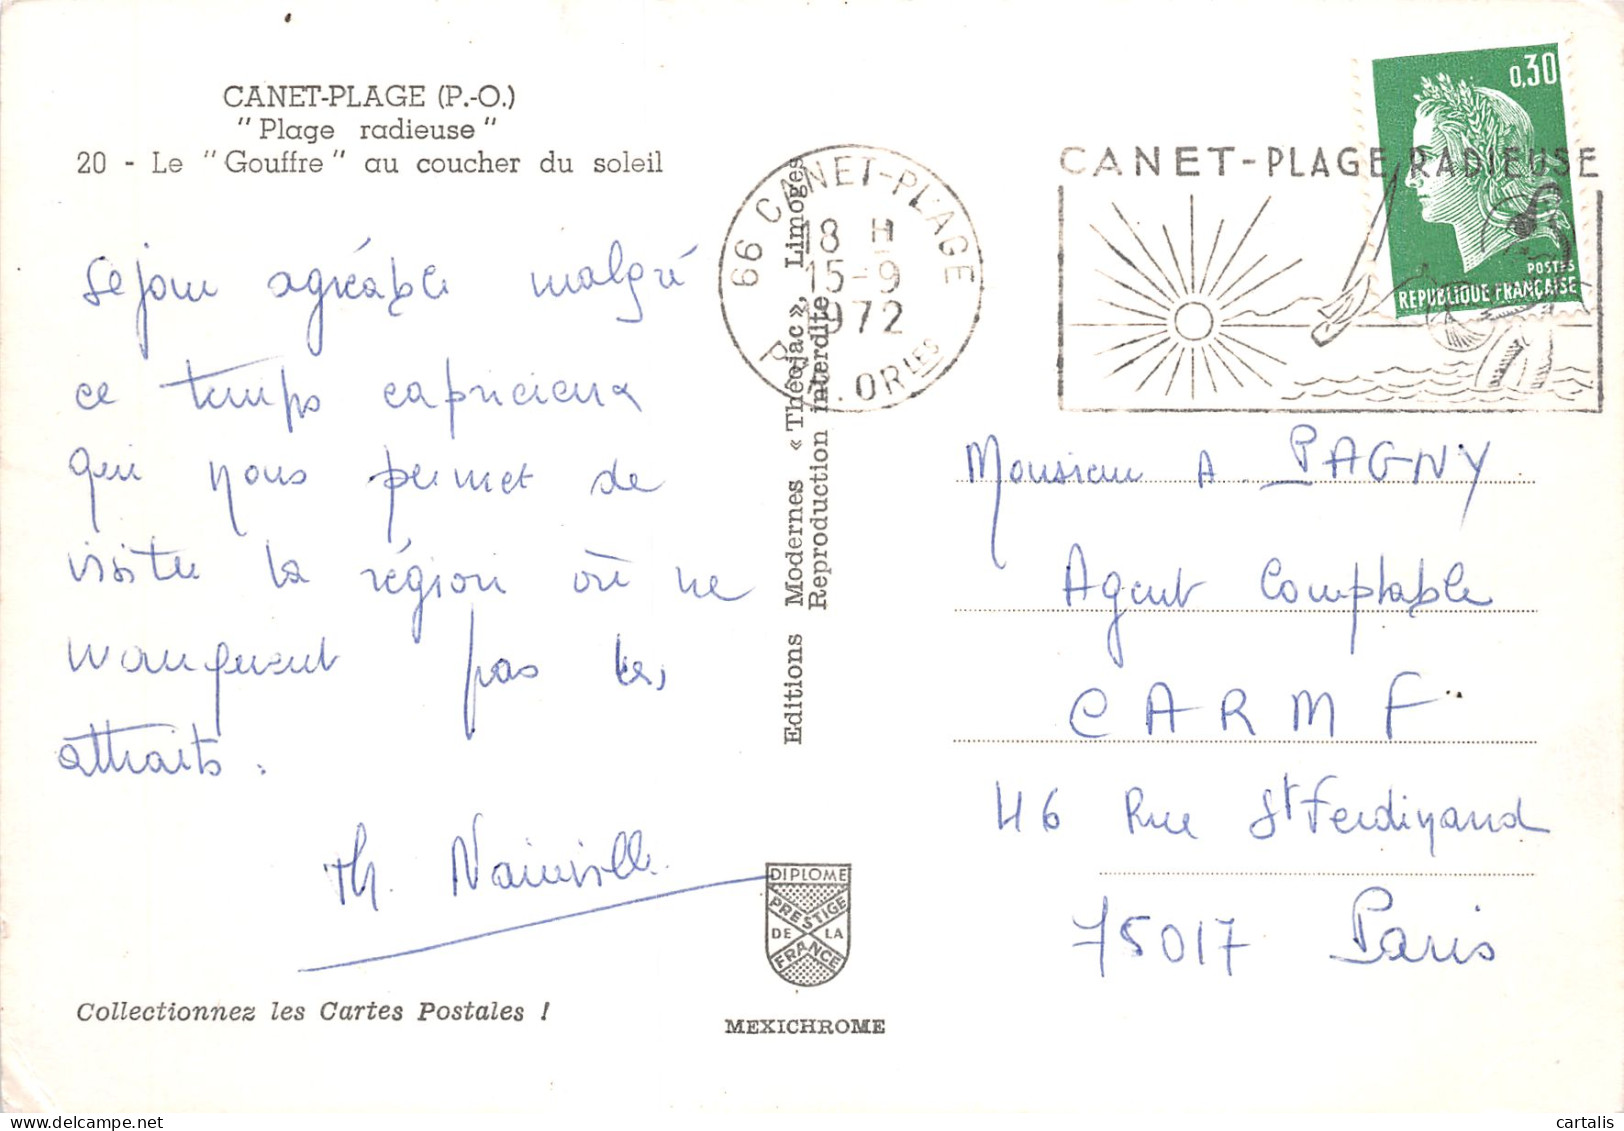 CANET-PLAGE (P.-O.)
"Plage radieuse"
20 - Le "Gouffre" au coucher du soleil
Séjour agréable malgré
ce temps capricieux
qui nous permet de
visiter la région où ne
manquent pas les
attraits.
Th.
Collectionnez les Cartes Postales !
Editions Modernes « Théojac », Limoges
Reproduction interdite
DIPLOME
PRESTIGE
DE LA
FRANCE
MEXICHROME
66 CANET-PLAGE
18 H
15-9
1972
P. ORLES
CANET-PLAGE RADIEUSE
0,30
POSTES
REPUBLIQUE FRANÇAISE
Monsieur A PAGNY
Agent Comptable
CARMF
46 Rue St Ferdinand
75017 Paris
cartalis